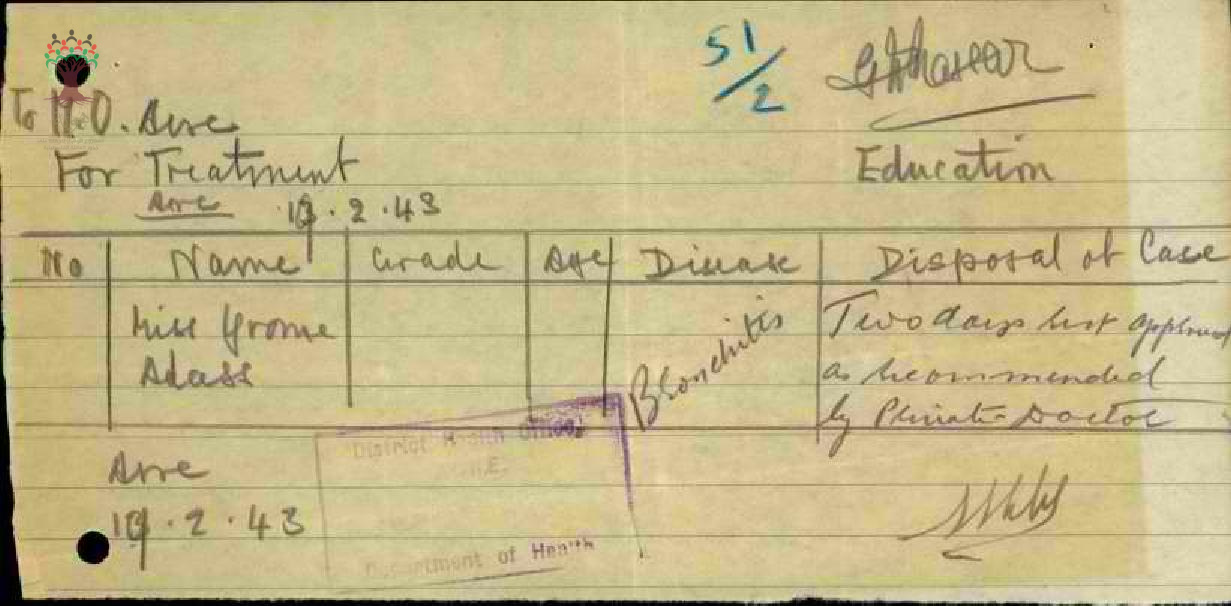 51/2
To M.O. Acre
For Treatment
Education
Acre 19.2.43
No Name Grade Age Disease Disposal of Case
Miss Yrome Adass Bronchitis Two days rest approved
as recommended
by Private Doctor
District Health Office,
Acre
19.2.43
Department of Health